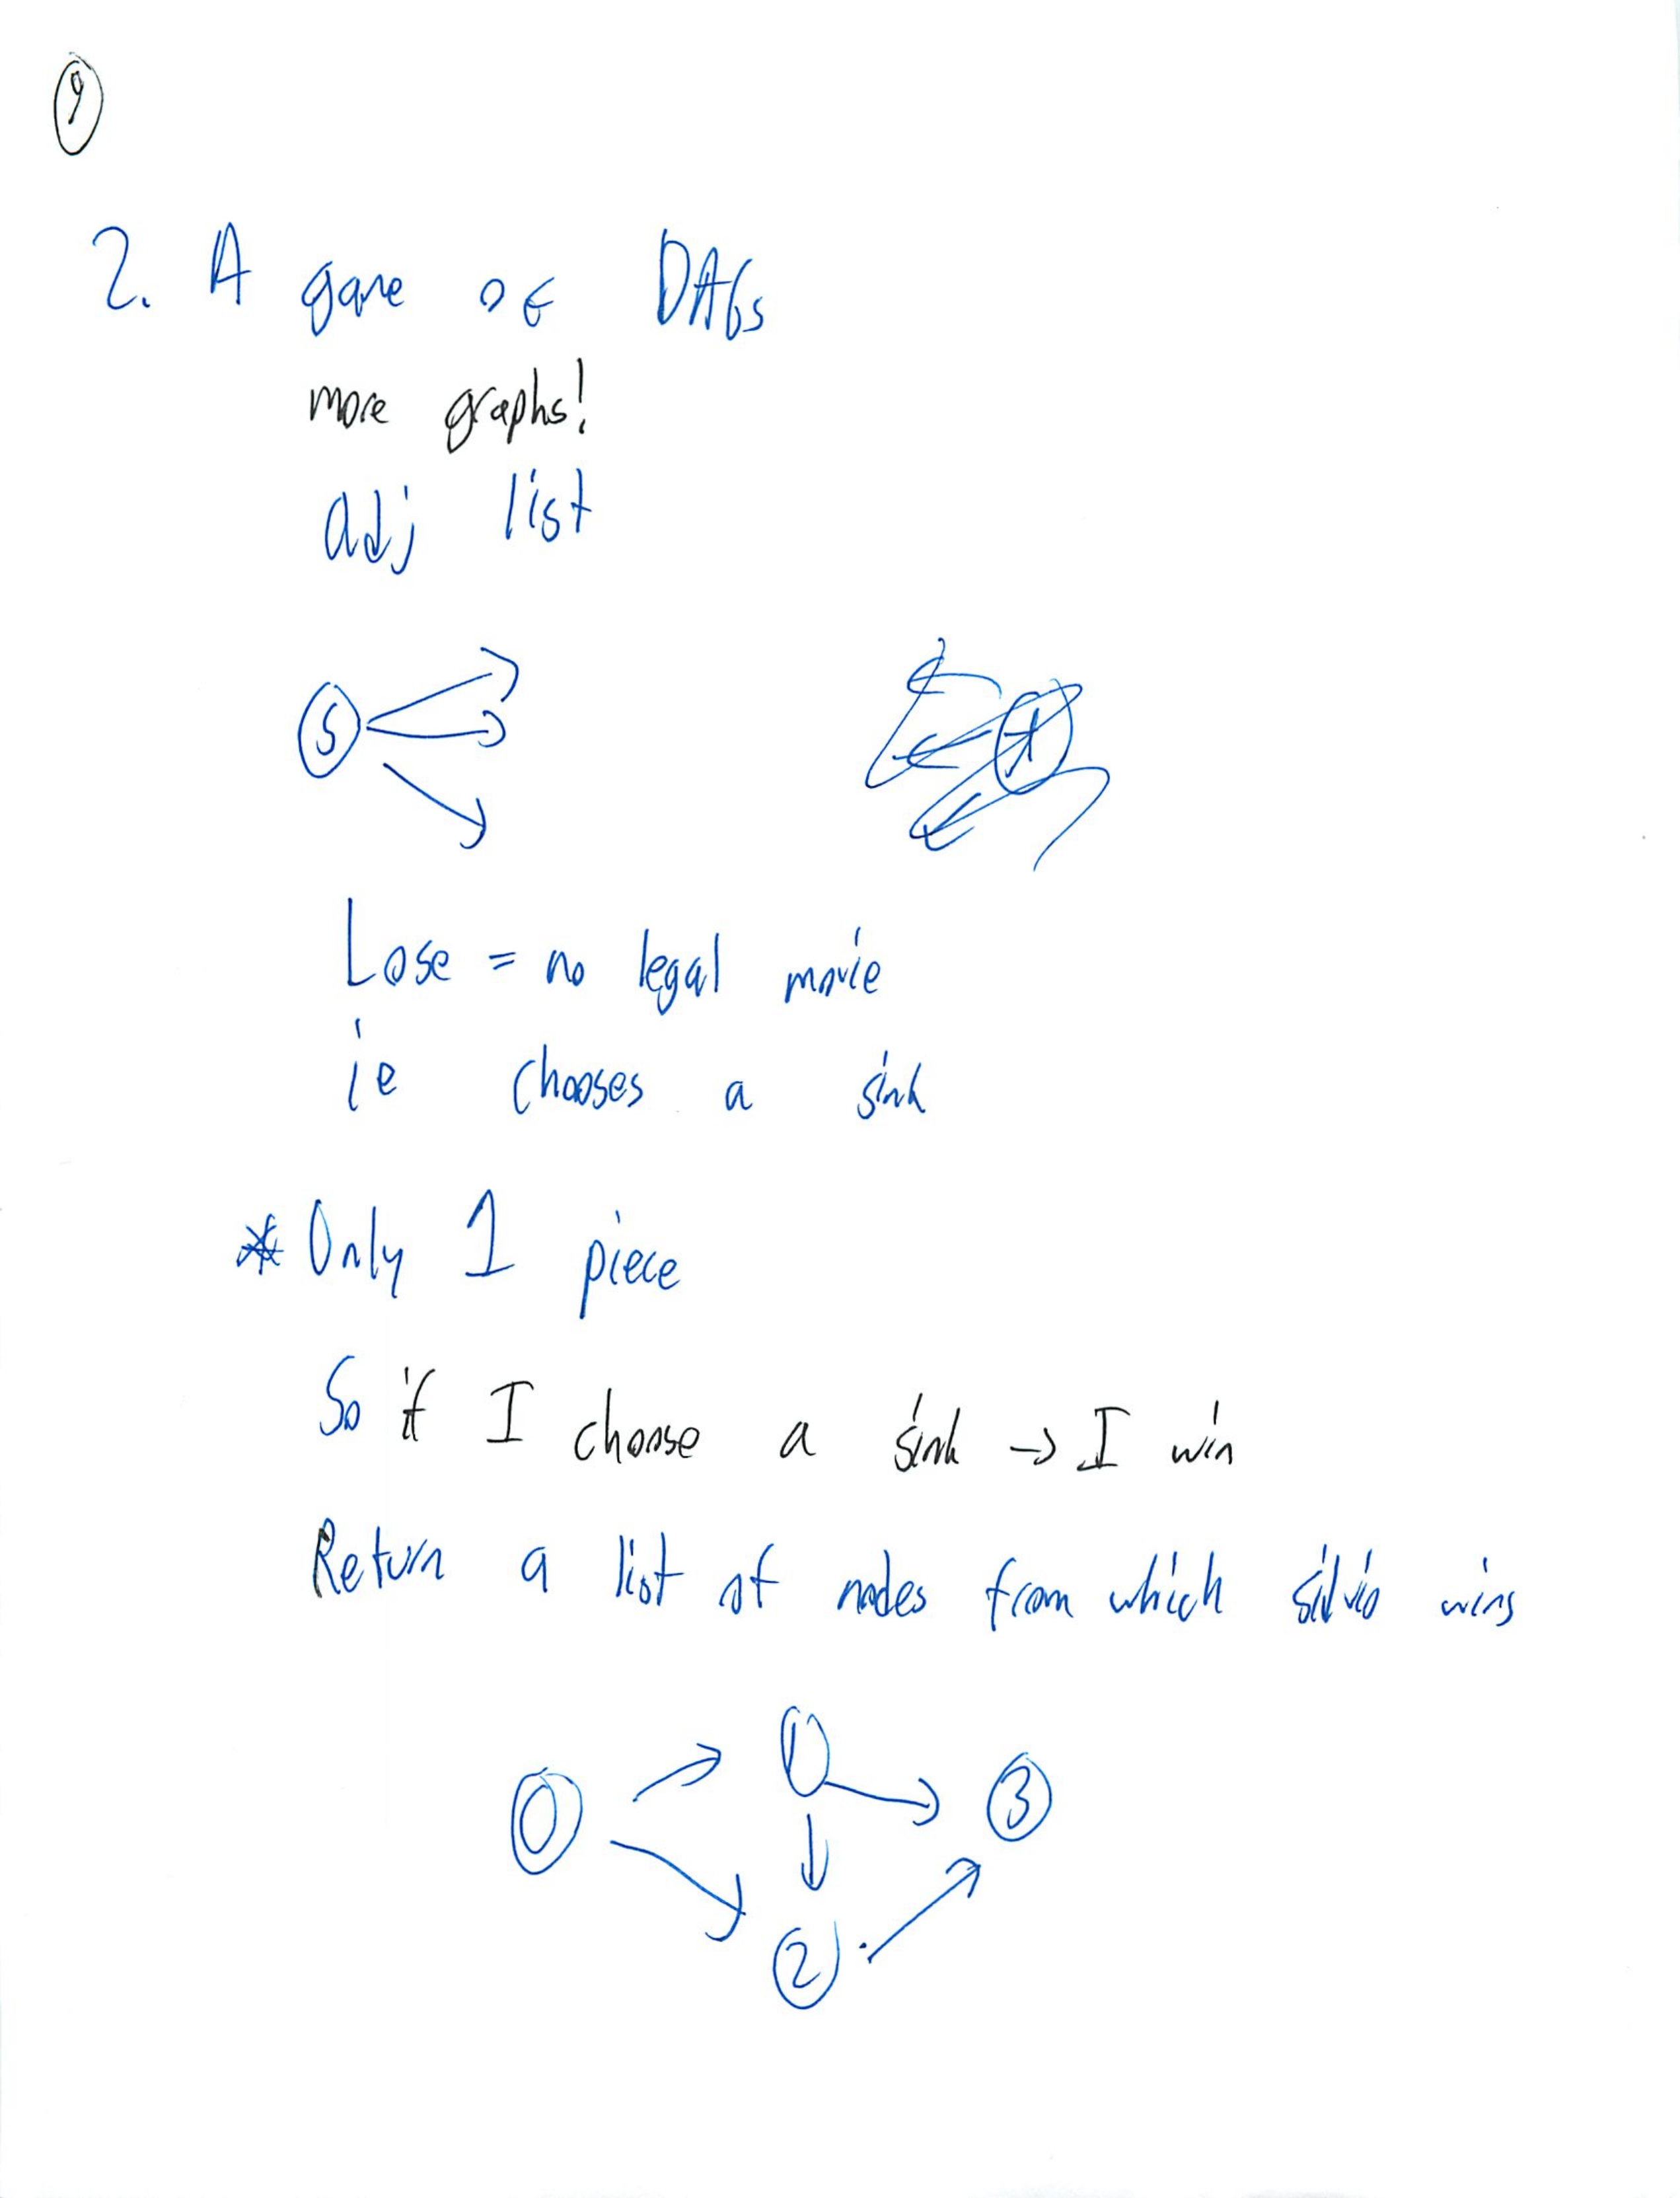 9
2. A game of DAGs
more graphs!
adj list
S
t
Lose = no legal movie
ie chooses a sink
* Only 1 piece
So if I choose a sink → I win
Return a list of nodes from which silvio wins
0 1 3
2